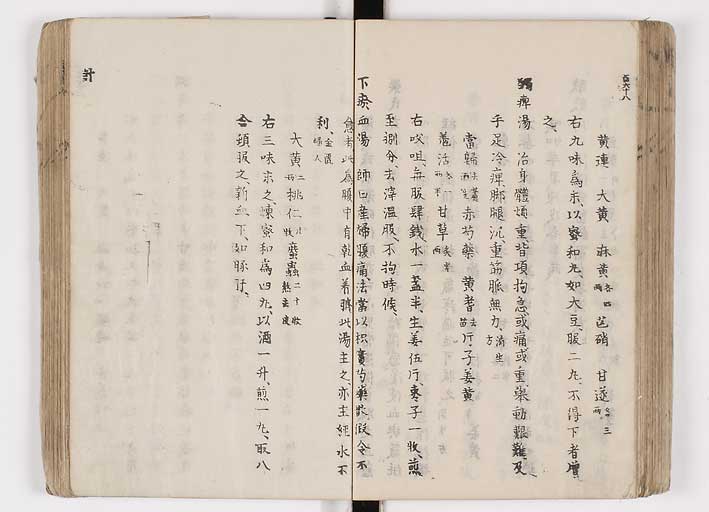 百六十八
黄連 大黄 麻黄各四両 芒硝 甘遂各三両
右九味為末、以蜜和丸、如大豆、服二丸、不得下者増
之、
蠲痺湯 治身體煩重背項拘急或痛或重舉動艱難及
手足冷痺脚腿沉重筋脈無力済生方
當歸去蘆酒浸 赤芍藥 黄耆去苗 片子姜黄
羗活各一両半 甘草炙半両
右㕮咀、每服肆錢水一盞半、生姜伍片、棗子一枚、煎
至捌分、去滓温服、不拘時候、
下瘀血湯 師曰産婦腹痛法當以枳實芍藥散假令不
愈者此為腹中有乾血着臍此湯主之、亦主經水不
利、金匱婦人
大黄二両 桃仁廿枚 䗪蟲二十枚熬去足
右三味末之、煉蜜和為四丸、以酒一升、煎一丸、取八
合頓服之新血下、如豚肝、